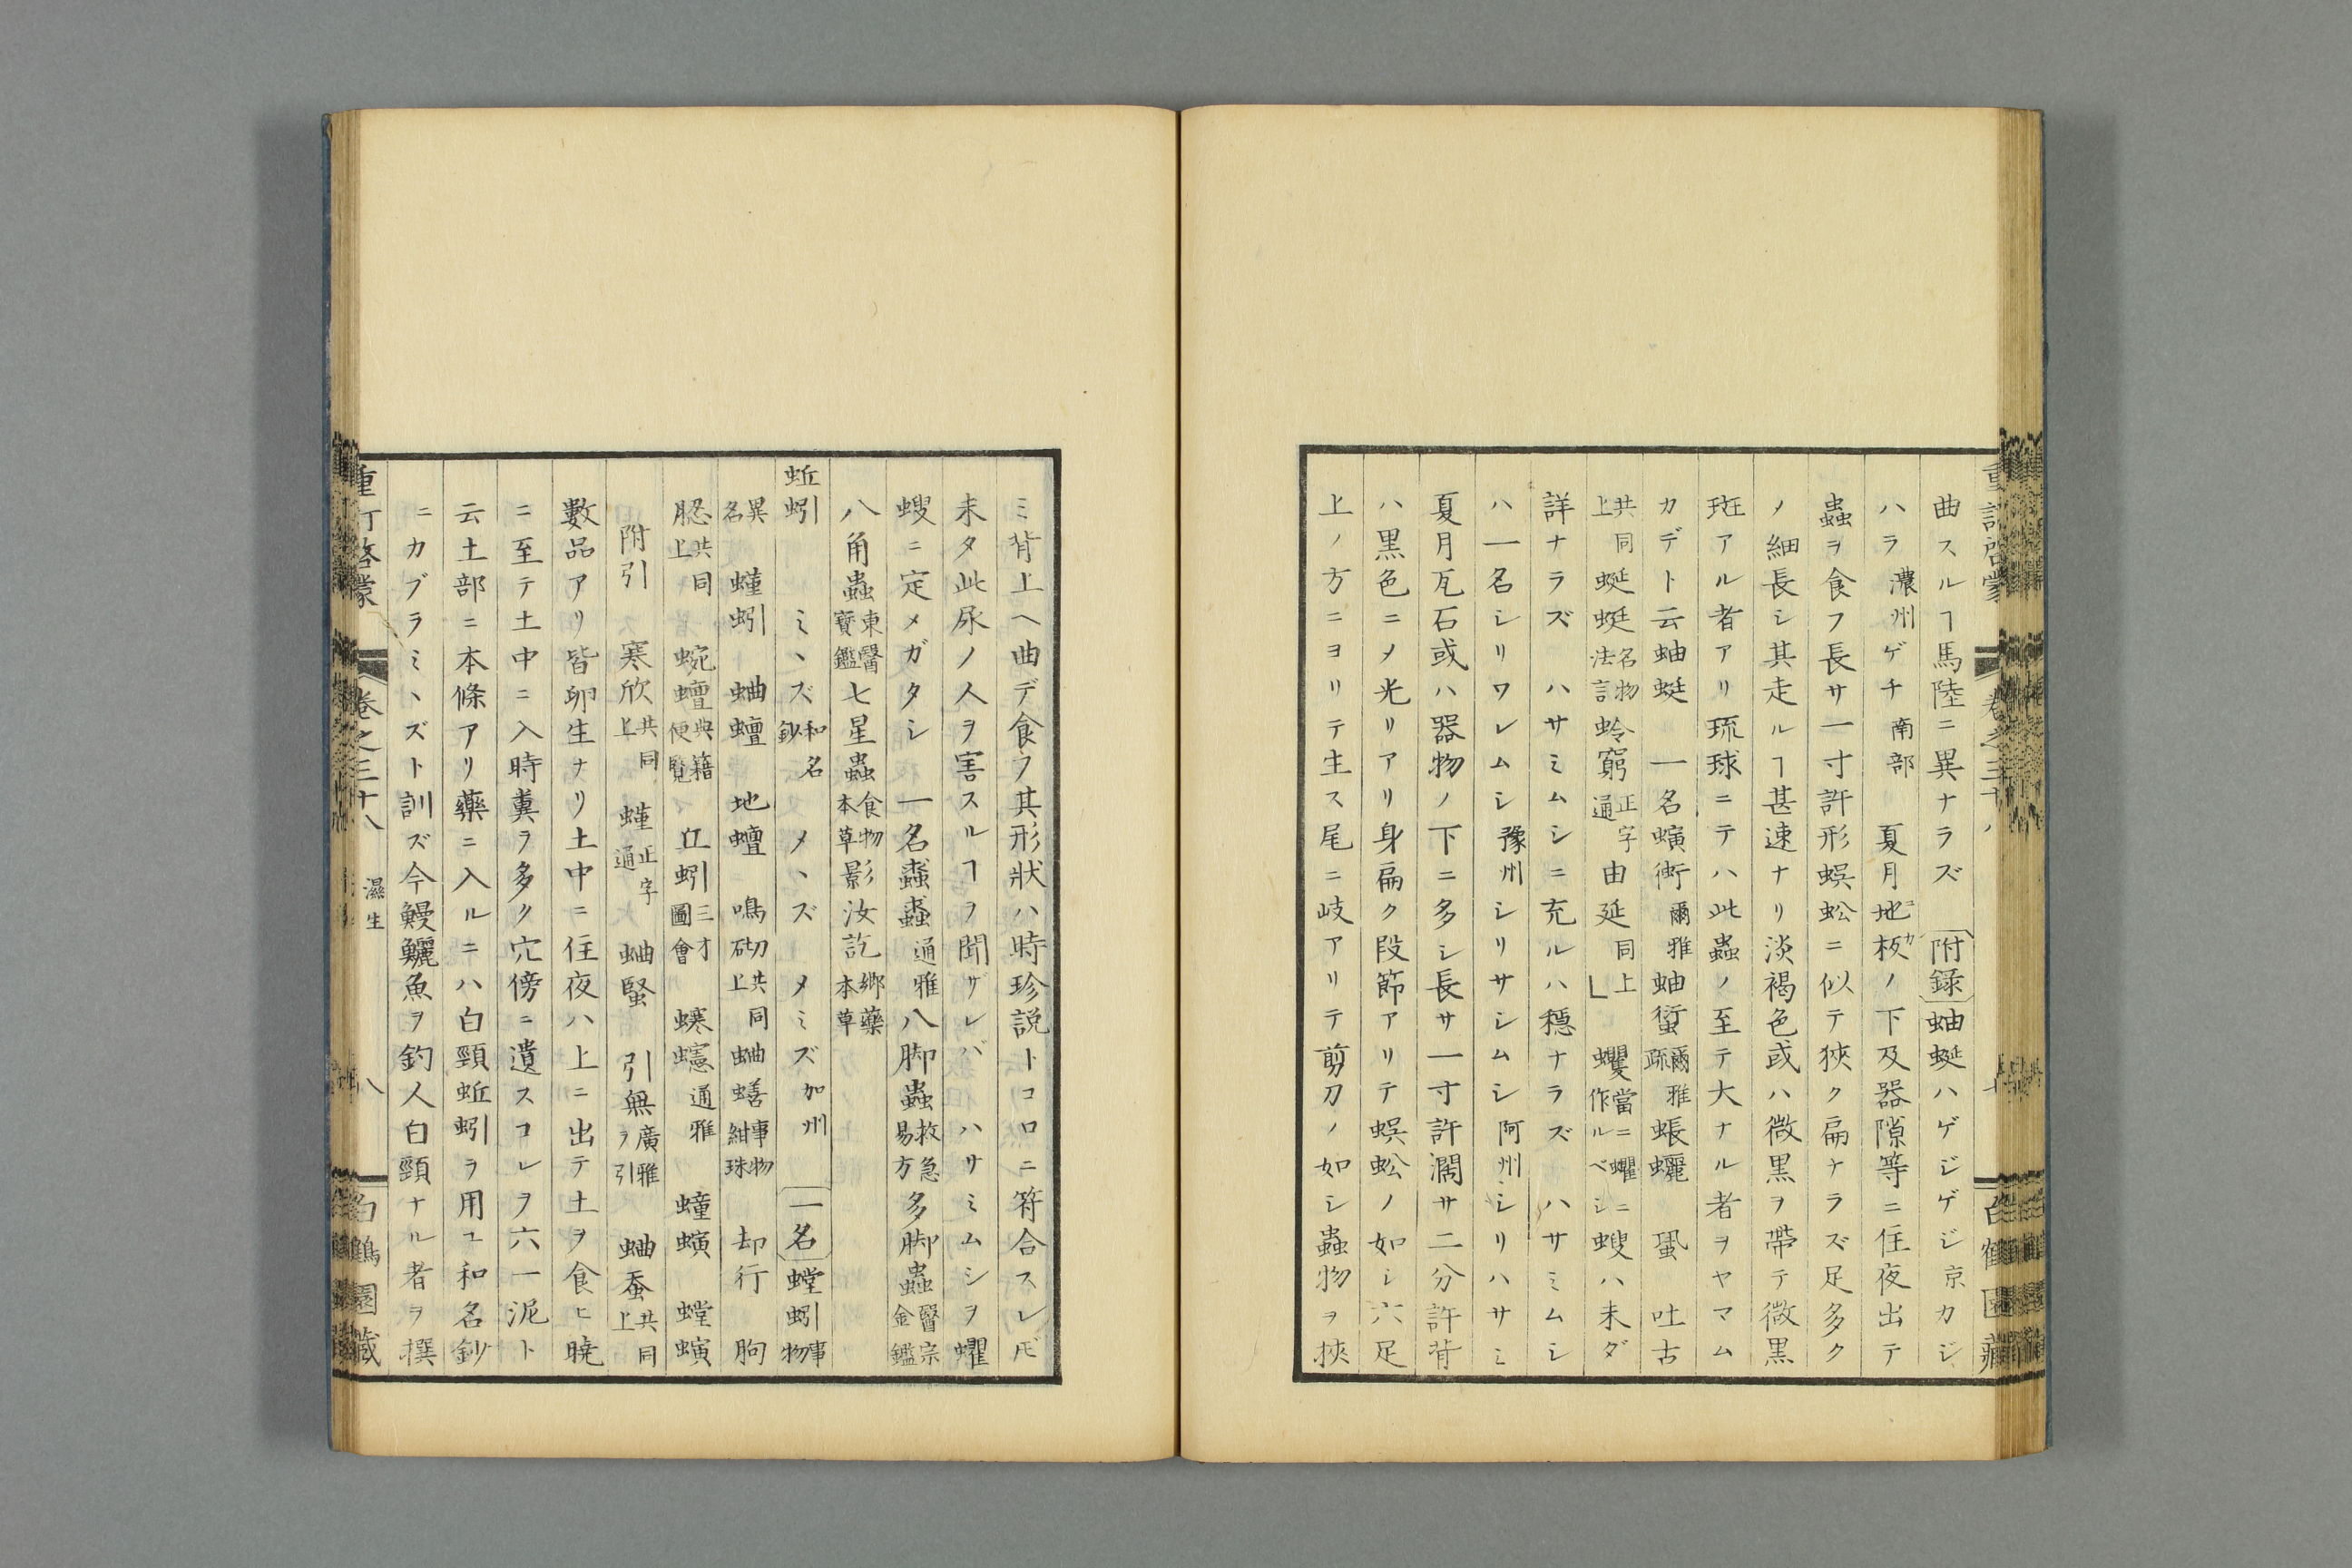 曲スルヿ馬陸ニ異ナラズ 附錄 蚰蜒ハゲジゲジ京カジ
ハラ濃州ゲチ南部 夏月地板ノ下及器隙等ニ住夜出テ
蟲ヲ食フ長サ一寸許形蜈蚣ニ似テ狹ク扁ナラズ足多ク
ノ細長シ其走ルヿ甚速ナリ淡褐色或ハ微黒ヲ帶テ微黒
斑アル者アリ琉球ニテハ此蟲ノ至テ大ナル者ヲヤマム
カデト云蚰蜒 一名螾衝爾雅蚰䗖爾雅疏蜄蠷 虱 吐古
共同上蜒蜓名物法言蛉窮正字通由延同上」 蠼當ニ蠷ニ作ルベシ螋ハ未ダ
詳ナラズ ハサミムシニ充ルハ穩ナラズ ハサミムシ
ハ一名シリワレムシ豫州シリサシムシ阿州シリハサミ
夏月瓦石或ハ器物ノ下ニ多シ長サ一寸許濶サ二分許背
ハ黒色ニメ光リアリ身扁ク段節アリテ蜈蚣ノ如シ六足
上ノ方ニヨリテ生ス尾ニ岐アリテ剪刀ノ如シ蟲物ヲ挾
ミ背上ヘ曲デ食フ其形狀ハ時珍説トコロニ符合スレ𪜈
未タ此尿ノ人ヲ害スルヿヲ聞ザレバハサミムシヲ蠷
螋ニ定メガタシ 一名蠹蠹通雅八脚蟲救急易方多脚蟲醫宗金鑑
八角蟲東醫寶鑑七星蟲食物本草影汝訖鄉藥本草
蚯蚓 ミヽズ和名鈔 メヽズ メミズ加州 一名 螳蚓事物
異名 螼蚓 蚰蟺 地蟺 鳴砌共同上蚰蟮事物紺珠 却行 朐
䏰共同上 蜿蟺典籍便覧 丘蚓三才圖會 蠑蟪通雅 蟺螾 螳螾
附引 寒欣共同上 螼正字通 蚰䗁 引無廣雅ヲ引 蚰蚕共同上
數品アリ皆卵生ナリ土中ニ住夜ハ上ニ出テ土ヲ食ヒ曉
ニ至テ土中ニ入時糞ヲ多ク穴傍ニ遺スコレヲ六一泥ト
云土部ニ本條アリ藥ニ入ルニハ白頸蚯蚓ヲ用ユ和名鈔
ニカブラミヽズト訓ズ今鰻鱺魚ヲ釣人白頸ナル者ヲ撰
重訂啓蒙 卷之三十八 濕生 八 白鶴園藏